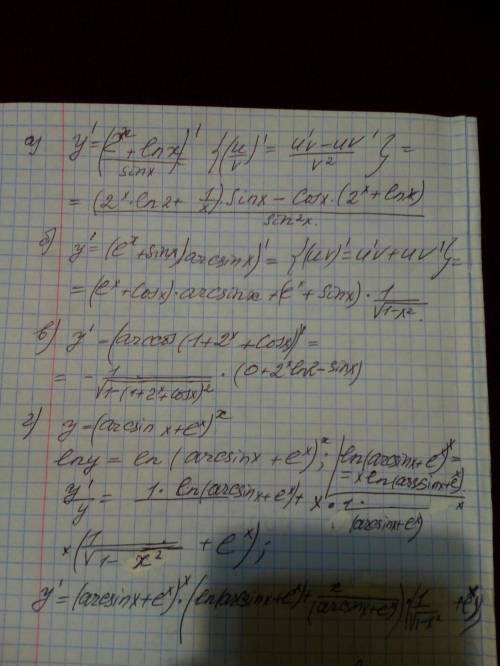 а) y' = ((e^x + ln x)/sin x)' {(u/v)' = (u'v - uv')/v²} =
= ((2^x · ln 2 + 1/x) · sin x - cos x · (2^x + ln x))/sin²x.
б) y' = (e^x + sin x) arcsin x)' = {(uv)' = u'v + uv'} =
= (e^x + cos x) · arcsin x + (e^x + sin x) · 1/√(1-x²).
в) y' = (arccos (1 + 2^x + cos x))' =
= - 1/√(1-(1+2^x+cos x)²) · (0 + 2^x ln 2 - sin x)
г) y = (arcsin x + e^x)^x
ln y = ln (arcsin x + e^x)^x; | ln(arcsin x + e^x)^x =
= x ln (arcsin x + e^x)
y'/y = 1 · ln (arcsin x + e^x) + x · 1/(arcsin x + e^x) ×
× (1/√(1-x²) + e^x);
y' = (arcsin x + e^x)^x · (ln(arcsin x + e^x) + x/(arcsin x + e^x)) · (1/√(1-x²) + e^x)